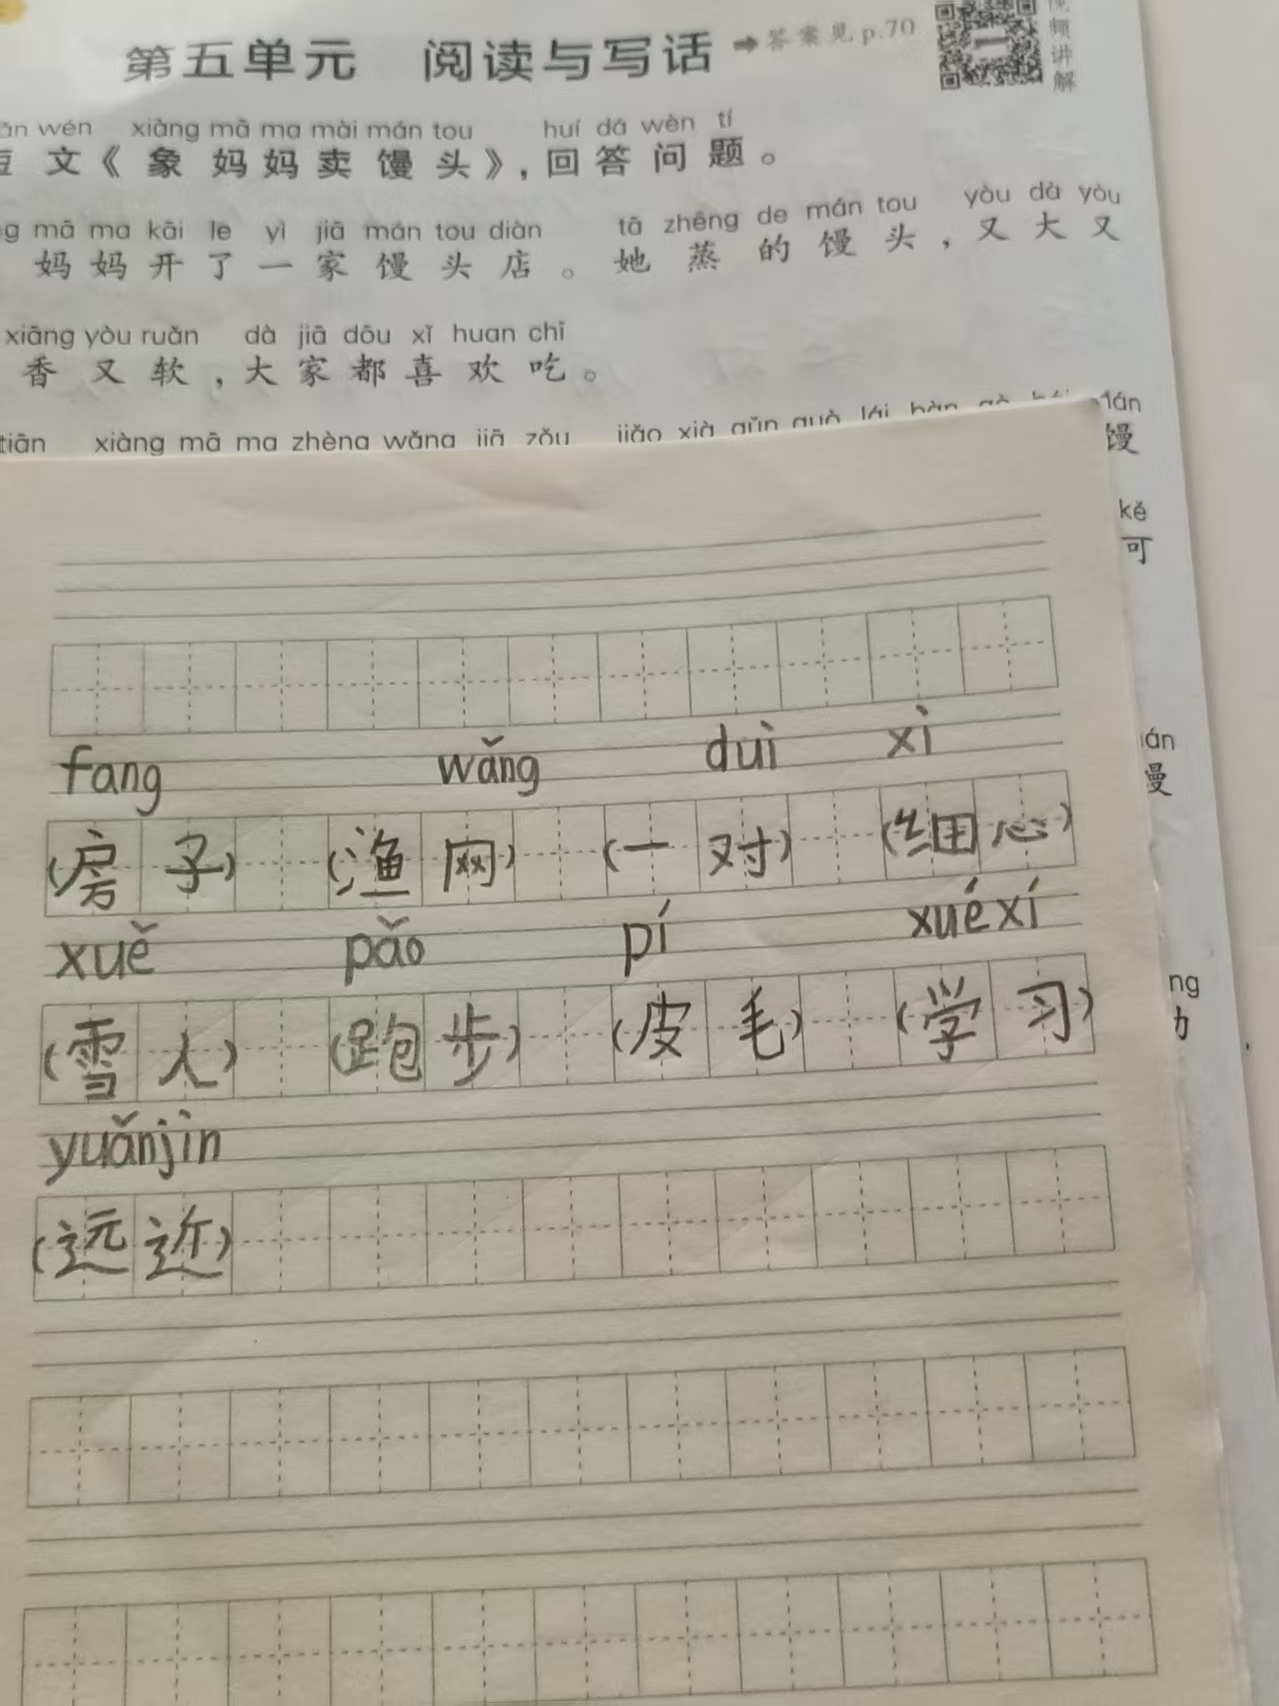 第五单元 阅读与写话 ➡答案见p.70
频讲解
wén xiàng mā ma mài mán tou huí dá wèn tí
文《象妈妈卖馒头》,回答问题。
mā ma kāi le yì jiā mán tou diàn tā zhēng de mán tou yòu dà yòu
妈妈开了一家馒头店。她蒸的馒头,又大又
xiāng yòu ruǎn dà jiā dōu xǐ huan chī
香又软,大家都喜欢吃。
tiān xiàng mā ma zhèng wǎng jiā zǒu jiǎo xià gǔn guò lái
馒
kě
可
fang wǎng duì xì
(房子) (渔网) (一对) (细心)
xuě pǎo pí xuéxí
(雪人) (跑步) (皮毛) (学习)
yuǎnjìn
(远近)